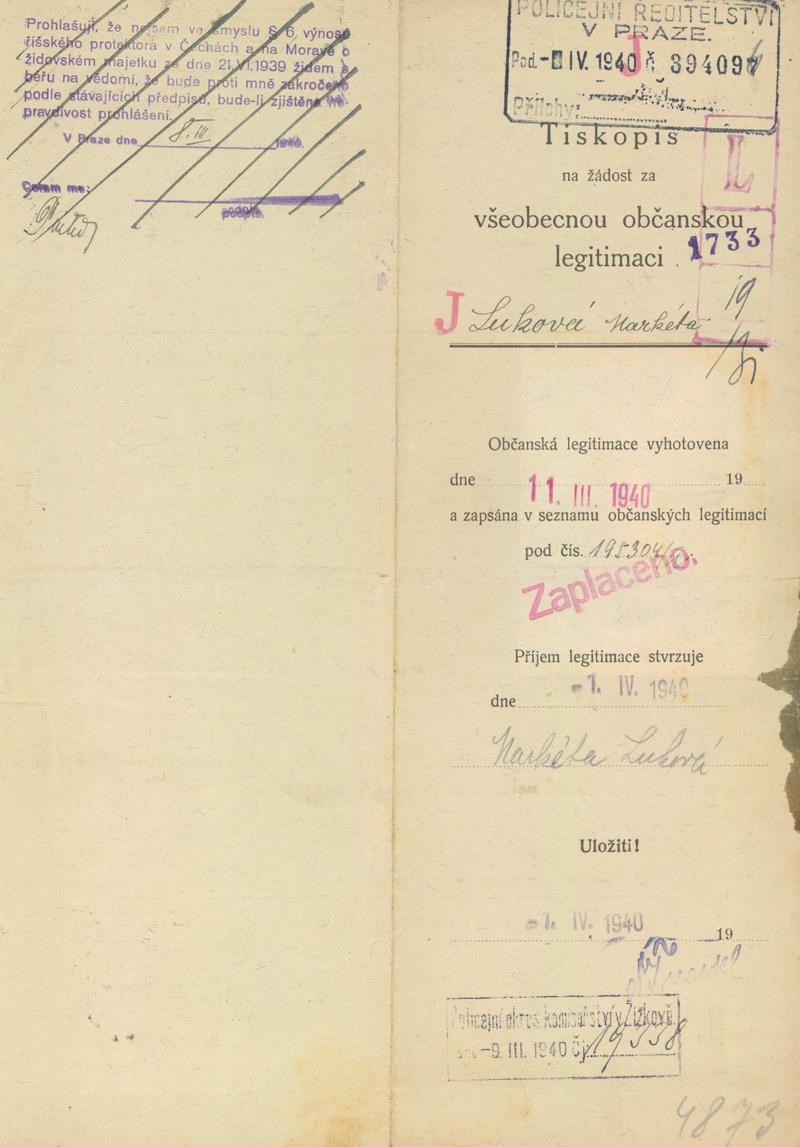 Prohlašuji, že nejsem ve smyslu § 6, výnosu
říšského protektora v Čechách a na Moravě o
židovském majetku ze dne 21.VI.1939 židem a
béru na vědomí, že bude proti mně zakročeno
podle stávajících předpisů, bude-li zjištěna ne-
pravdivost prohlášení.
V Praze dne 8. III 1940.
Četem me:
podpis.
POLICEJNÍ ŘEDITELSTVÍ
V PRAZE.
Pod. - IV. 1940 č. 394094
Přílohy:
J
Tiskopis
na žádost za
všeobecnou občanskou
legitimaci
1733
J Luková Markéta
19
Občanská legitimace vyhotovena
dne 11. III. 1940 19
a zapsána v seznamu občanských legitimací
pod čís. 195304
Zaplaceno.
Příjem legitimace stvrzuje
dne -1. IV. 1940
Markéta Luková
Uložiti!
-1. IV. 1940 19
Policejní okres. komisařství v Žižkově
-9. III. 1940 Čj. 19338
4873